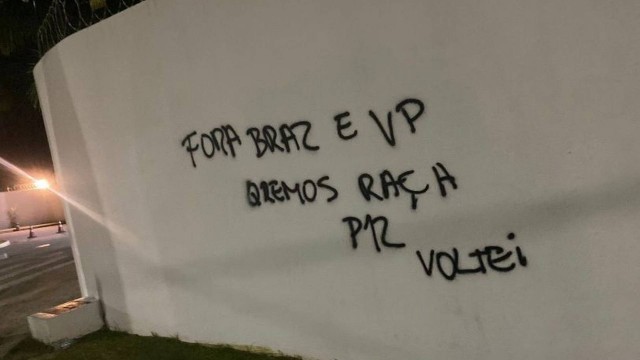 FORA BRAZ E VP
QREMOS RAÇA
P12
VOLTEI